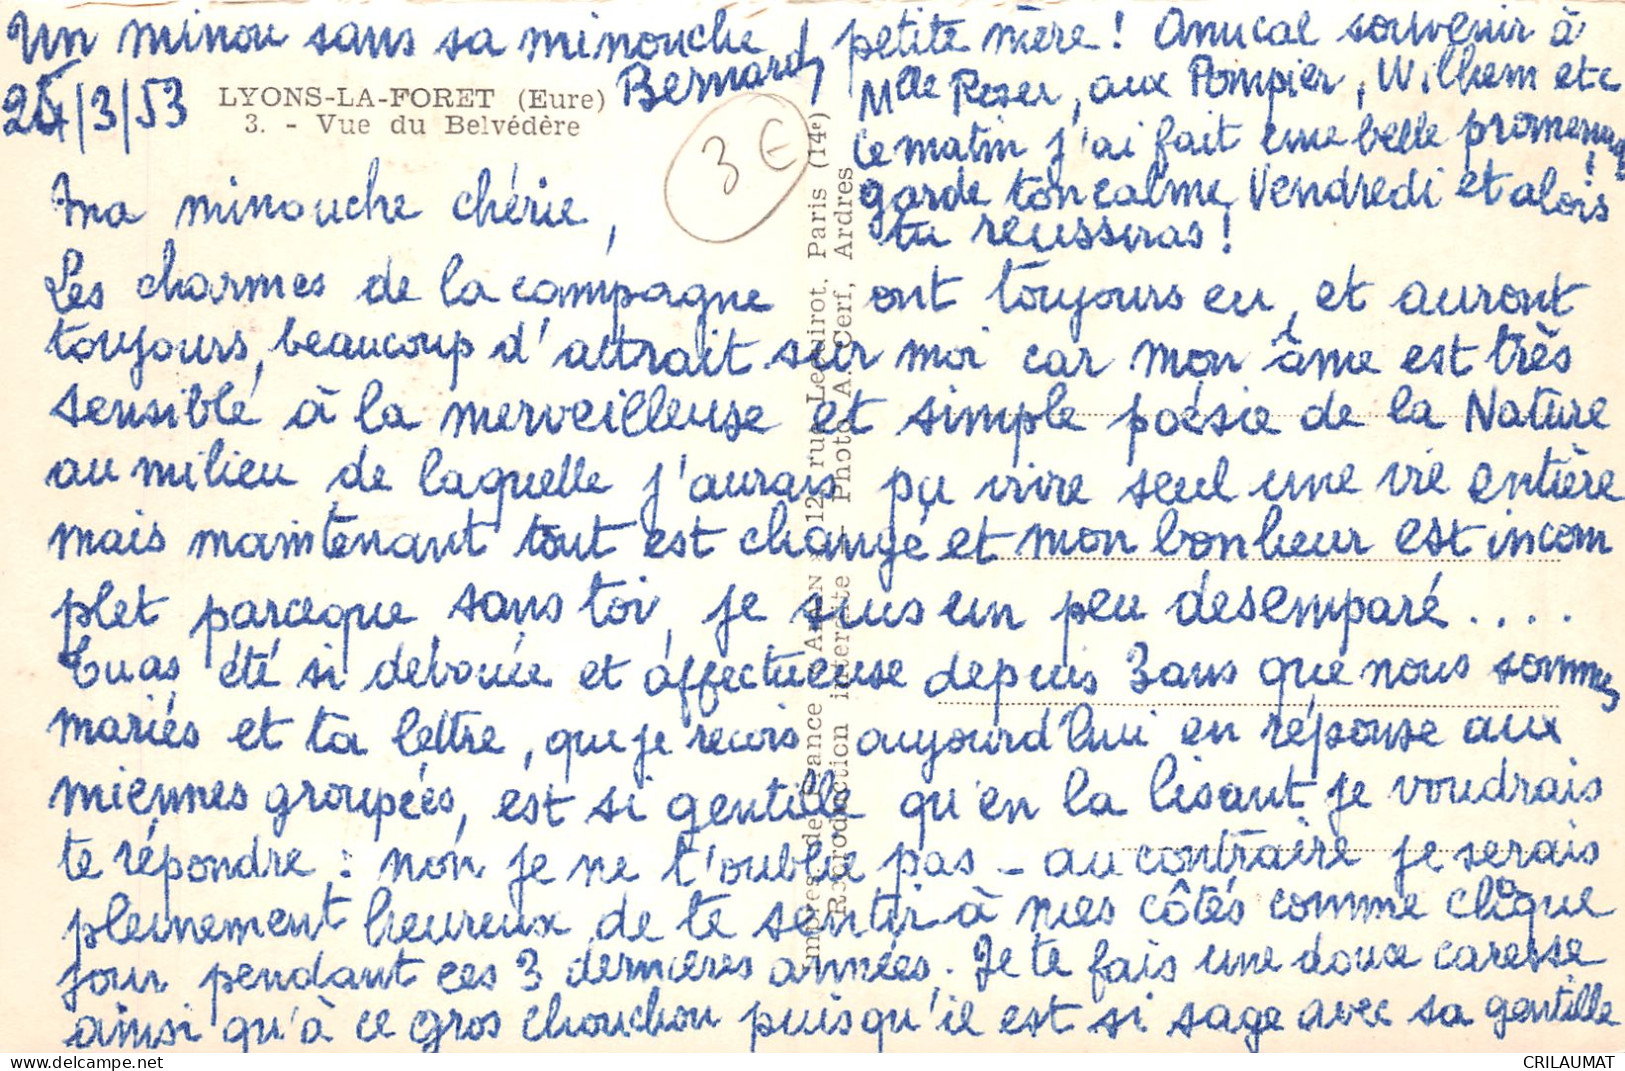 Un minou sans sa minouche
Bernard
24/3/53
LYONS-LA-FORET (Eure)
3. - Vue du Belvédère
3 €
Ma minouche chérie,
Les charmes de la campagne ont toujours eu, et auront
toujours, beaucoup d'attrait sur moi car mon âme est très
sensible à la merveilleuse et simple poésie de la Nature
au milieu de laquelle j'aurais pu vivre seul une vie entière
mais maintenant tout est changé et mon bonheur est incom
plet parceque sans toi, je suis un peu desemparé....
Tu as été si dévouée et affectueuse depuis 3 ans que nous sommes
mariés et ta lettre, que je reçois aujourd'hui en réponse aux
miennes groupées, est si gentille qu'en la lisant je voudrais
te répondre : non je ne t'oublie pas - au contraire je serais
pleinement heureux de te sentir à mes côtés comme chaque
jour pendant ces 3 dernières années. Je te fais une douce caresse
ainsi qu'à ce gros chouchou puisqu'il est si sage avec sa gentille
petite mère! Amical souvenir à
Mlle Roser, aux Pompier, Wilhem etc
Ce matin j'ai fait une belle promenade!
garde ton calme, Vendredi et alors
tu réussiras!
Reproduction interdite - Photo A. Cerf, Ardres